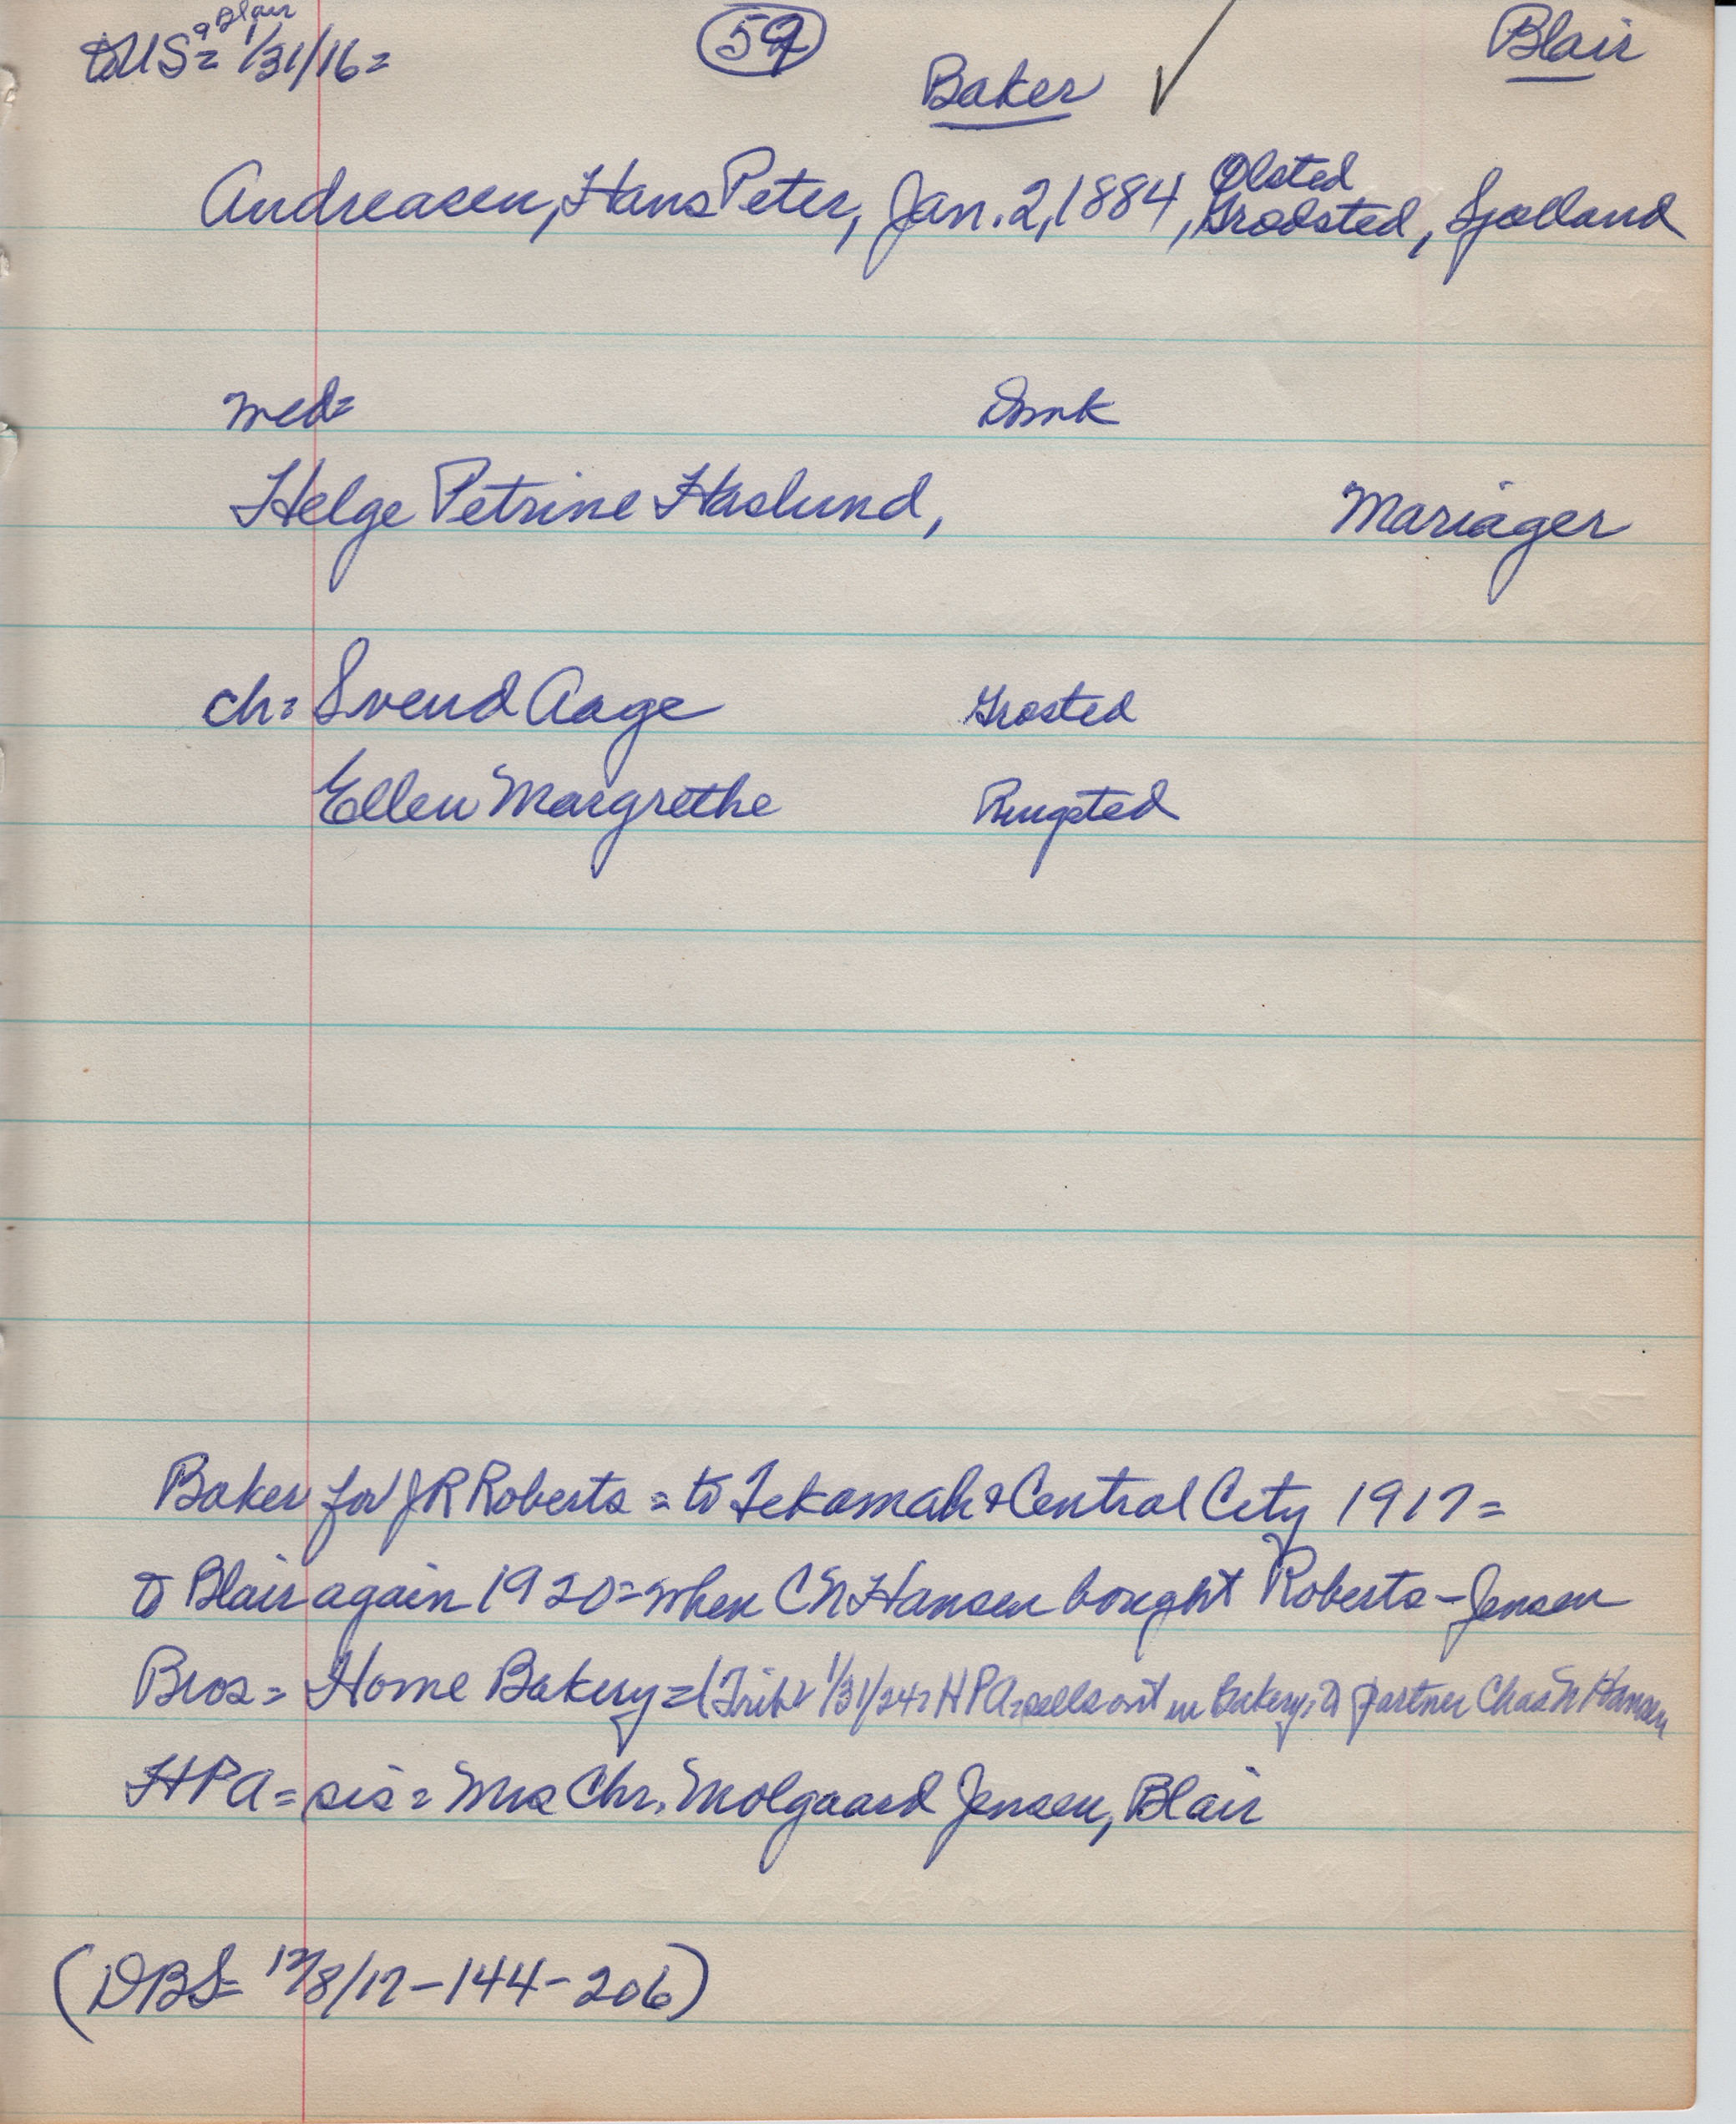 & Blair
to US = 1/31/16 =
59
Blair
Baker ✓
Olsted
Andreasen, Hans Peter, Jan. 2, 1884, Grodsted, Sjælland
med= Dmk
Helge Petrine Haslund, Mariager
ch= Svend Aage Grosted
Ellen Margrethe Ringsted
Baker for J R Roberts = to Tekamah & Central City 1917 =
to Blair again 1920 = when C N Hansen bought Roberts - Jensen
Bros = Home Bakery = (Trib = 1/31/24 = H P A = sells out in Bakery = to partner Chas N Hansen
H P A = sis = Mrs Chr. Molgaard Jensen, Blair
(DBS= /8/17-144-206)